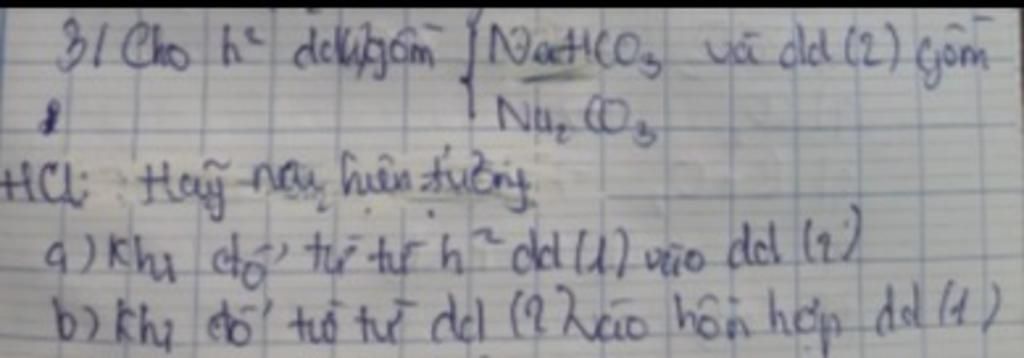 3/ Cho h² dd(1) gồm { NaHCO₃ và dd (2) gồm
Na₂CO₃
HCl: Hãy nêu hiện tượng
a) Khi đổ từ từ h² dd (1) vào dd (2)
b) Khi đổ từ từ dd (2) vào hỗn hợp dd (1)